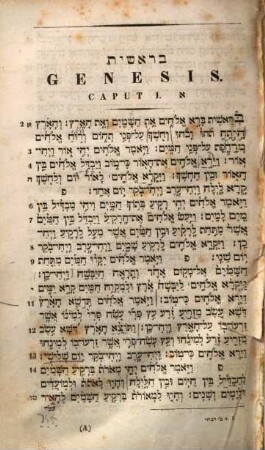 בראשית
GENESIS.
CAPUT I. א
בְּרֵאשִׁית בָּרָא אֱלֹהִים אֵת הַשָּׁמַיִם וְאֵת הָאָרֶץ: וְהָאָרֶץ 2
הָיְתָה תֹהוּ וָבֹהוּ וְחֹשֶׁךְ עַל־פְּנֵי תְהוֹם וְרוּחַ אֱלֹהִים
3 מְרַחֶפֶת עַל־פְּנֵי הַמָּיִם: וַיֹּאמֶר אֱלֹהִים יְהִי אוֹר וַיְהִי־
4 אוֹר: וַיַּרְא אֱלֹהִים אֶת־הָאוֹר כִּי־טוֹב וַיַּבְדֵּל אֱלֹהִים בֵּין
ה הָאוֹר וּבֵין הַחֹשֶׁךְ: וַיִּקְרָא אֱלֹהִים לָאוֹר יוֹם וְלַחֹשֶׁךְ
קָרָא לָיְלָה וַיְהִי־עֶרֶב וַיְהִי־בֹקֶר יוֹם אֶחָד: פ
6 וַיֹּאמֶר אֱלֹהִים יְהִי רָקִיעַ בְּתוֹךְ הַמָּיִם וִיהִי מַבְדִּיל בֵּין
7 מַיִם לָמָיִם: וַיַּעַשׂ אֱלֹהִים אֶת־הָרָקִיעַ וַיַּבְדֵּל בֵּין הַמַּיִם
אֲשֶׁר מִתַּחַת לָרָקִיעַ וּבֵין הַמַּיִם אֲשֶׁר מֵעַל לָרָקִיעַ וַיְהִי־
8 כֵן: וַיִּקְרָא אֱלֹהִים לָרָקִיעַ שָׁמָיִם וַיְהִי־עֶרֶב וַיְהִי־בֹקֶר
9 יוֹם שֵׁנִי: פ וַיֹּאמֶר אֱלֹהִים יִקָּווּ הַמַּיִם מִתַּחַת
הַשָּׁמַיִם אֶל־מָקוֹם אֶחָד וְתֵרָאֶה הַיַּבָּשָׁה וַיְהִי־כֵן:
וַיִּקְרָא אֱלֹהִים לַיַּבָּשָׁה אֶרֶץ וּלְמִקְוֵה הַמַּיִם קָרָא יַמִּים
11 וַיַּרְא אֱלֹהִים כִּי־טוֹב: וַיֹּאמֶר אֱלֹהִים תַּדְשֵׁא הָאָרֶץ
דֶּשֶׁא עֵשֶׂב מַזְרִיעַ זֶרַע עֵץ פְּרִי עֹשֶׂה פְּרִי לְמִינוֹ אֲשֶׁר
12 זַרְעוֹ־בוֹ עַל־הָאָרֶץ וַיְהִי־כֵן: וַתּוֹצֵא הָאָרֶץ דֶּשֶׁא עֵשֶׂב
מַזְרִיעַ זֶרַע לְמִינֵהוּ וְעֵץ עֹשֶׂה־פְּרִי אֲשֶׁר זַרְעוֹ־בוֹ לְמִינֵהוּ
13 וַיַּרְא אֱלֹהִים כִּי־טוֹב: וַיְהִי־עֶרֶב וַיְהִי־בֹקֶר יוֹם שְׁלִישִׁי:
14 פ וַיֹּאמֶר אֱלֹהִים יְהִי מְאֹרֹת בִּרְקִיעַ הַשָּׁמַיִם
לְהַבְדִּיל בֵּין הַיּוֹם וּבֵין הַלָּיְלָה וְהָיוּ לְאֹתֹת וּלְמוֹעֲדִים
וּלְיָמִים וְשָׁנִים: וְהָיוּ לִמְאוֹרֹת בִּרְקִיעַ הַשָּׁמַיִם לְהָאִיר
(A)